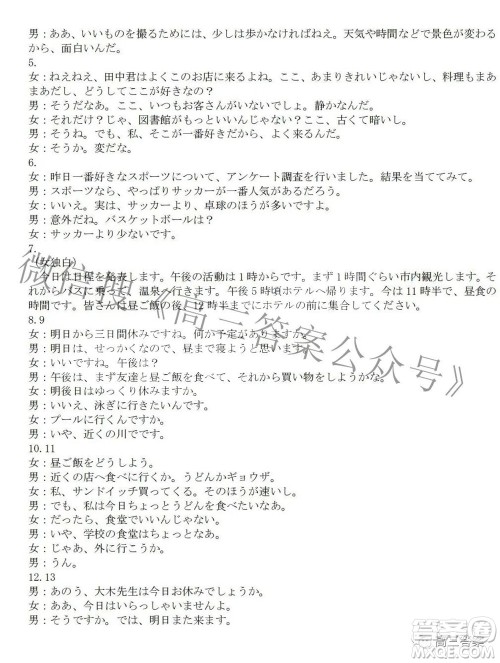 男：ああ、いいものを撮るためには、少しは歩かなければねえ。天気や時間などで景色が変わる
から、面白いんだ。
5.
女：ねえねえ、田中君はよくこのお店に来るよね。ここ、あまりきれいじゃないし、料理もまあ
まあだし、どうしてここが好きなの？
男：そうだなあ。ここ、いつもお客さんがいないでしょ。静かなんだ。
女：それだけ？じゃ、図書館がもっといいんじゃない？ここ、古くて暗いし。
男：そうね。でも、私、そこが一番好きなんだよね。
女：そうか。変だな。
6.
女：昨日一番好きなスポーツについて、アンケート調査を行いました。結果を当ててみて。
男：スポーツなら、やっぱりサッカーが一番人気があるだろう。
女：いいえ、実は、サッカーより、卓球のほうが多いですよ。
男：意外だね。バスケットボールは？
女：サッカーより少ないです。
7.
（女独白）
今日は日程を発表します。午後の活動は1時からです。まず1時間ぐらい市内観光します。そ
れからバスに乗って、温泉へ行きます。午後5時頃ホテルへ帰ります。今は11時半で、昼食の
時間です。皆さんは昼ご飯の後、12時半までにホテルの前に集合してください。
8.9
女：明日から三日間休みですね。何か予定がありますか。
男：明日は、せっかくなので、昼まで寝ようと思います。
女：いいですね。午後は？
男：午後は、まず友達と昼ご飯を食べて、それから買い物をしようかな。
女：明後日はゆっくり休みますか。
男：いいえ、泳ぎに行きたいんです。
女：プールに行くんですか。
男：いや、近くの川でです。
10.11
女：昼ご飯をどうしよう。
男：近くの店へ食べに行くか。うどんかギョウザ。
女：私、サンドイッチ買ってくる。そのほうが速いし。
男：でも、私は今日ちょっとうどんを食べたいなあ。
女：だったら、食堂でいいんじゃない。
男：いや、学校の食堂はちょっとなあ。
女：じゃあ、外に行こうか。
男：うん。
12.13
男：あのう、大木先生は今日お休みでしょうか。
女：ああ、今日はいらっしゃいませんよ。
男：そうですか。では、明日また来ます。
微信搜《高三答案公众号》
高三答案